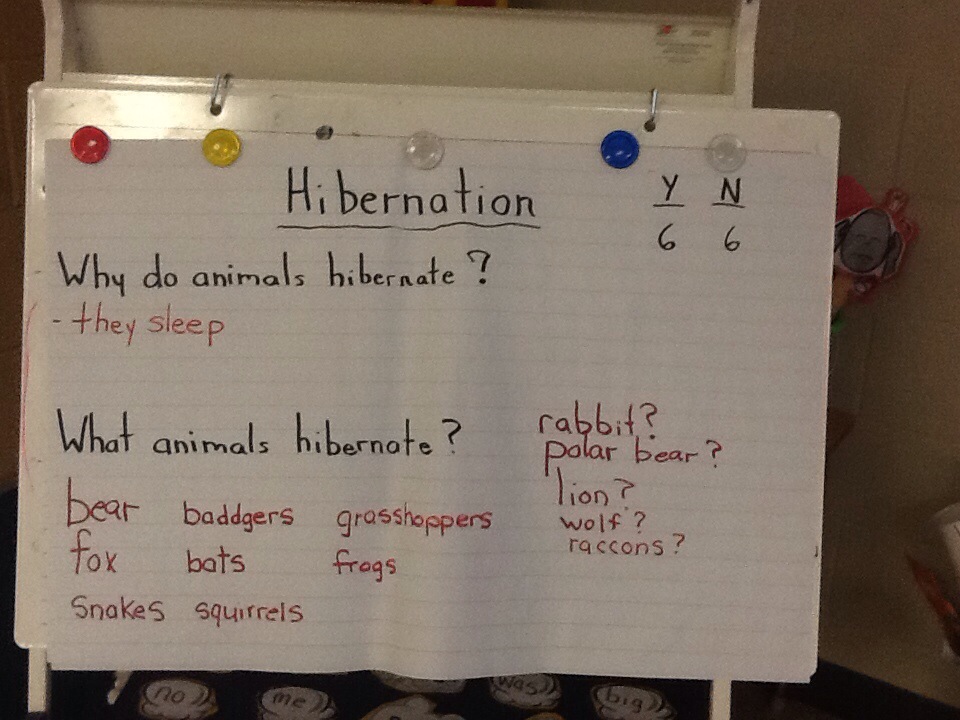 Hibernation
Y N
6 6
Why do animals hibernate?
- they sleep
What animals hibernate?
bear baddgers grasshoppers
fox bats frogs
snakes squirrels
rabbit?
polar bear?
lion?
wolf?
raccons?
no
me
was
big